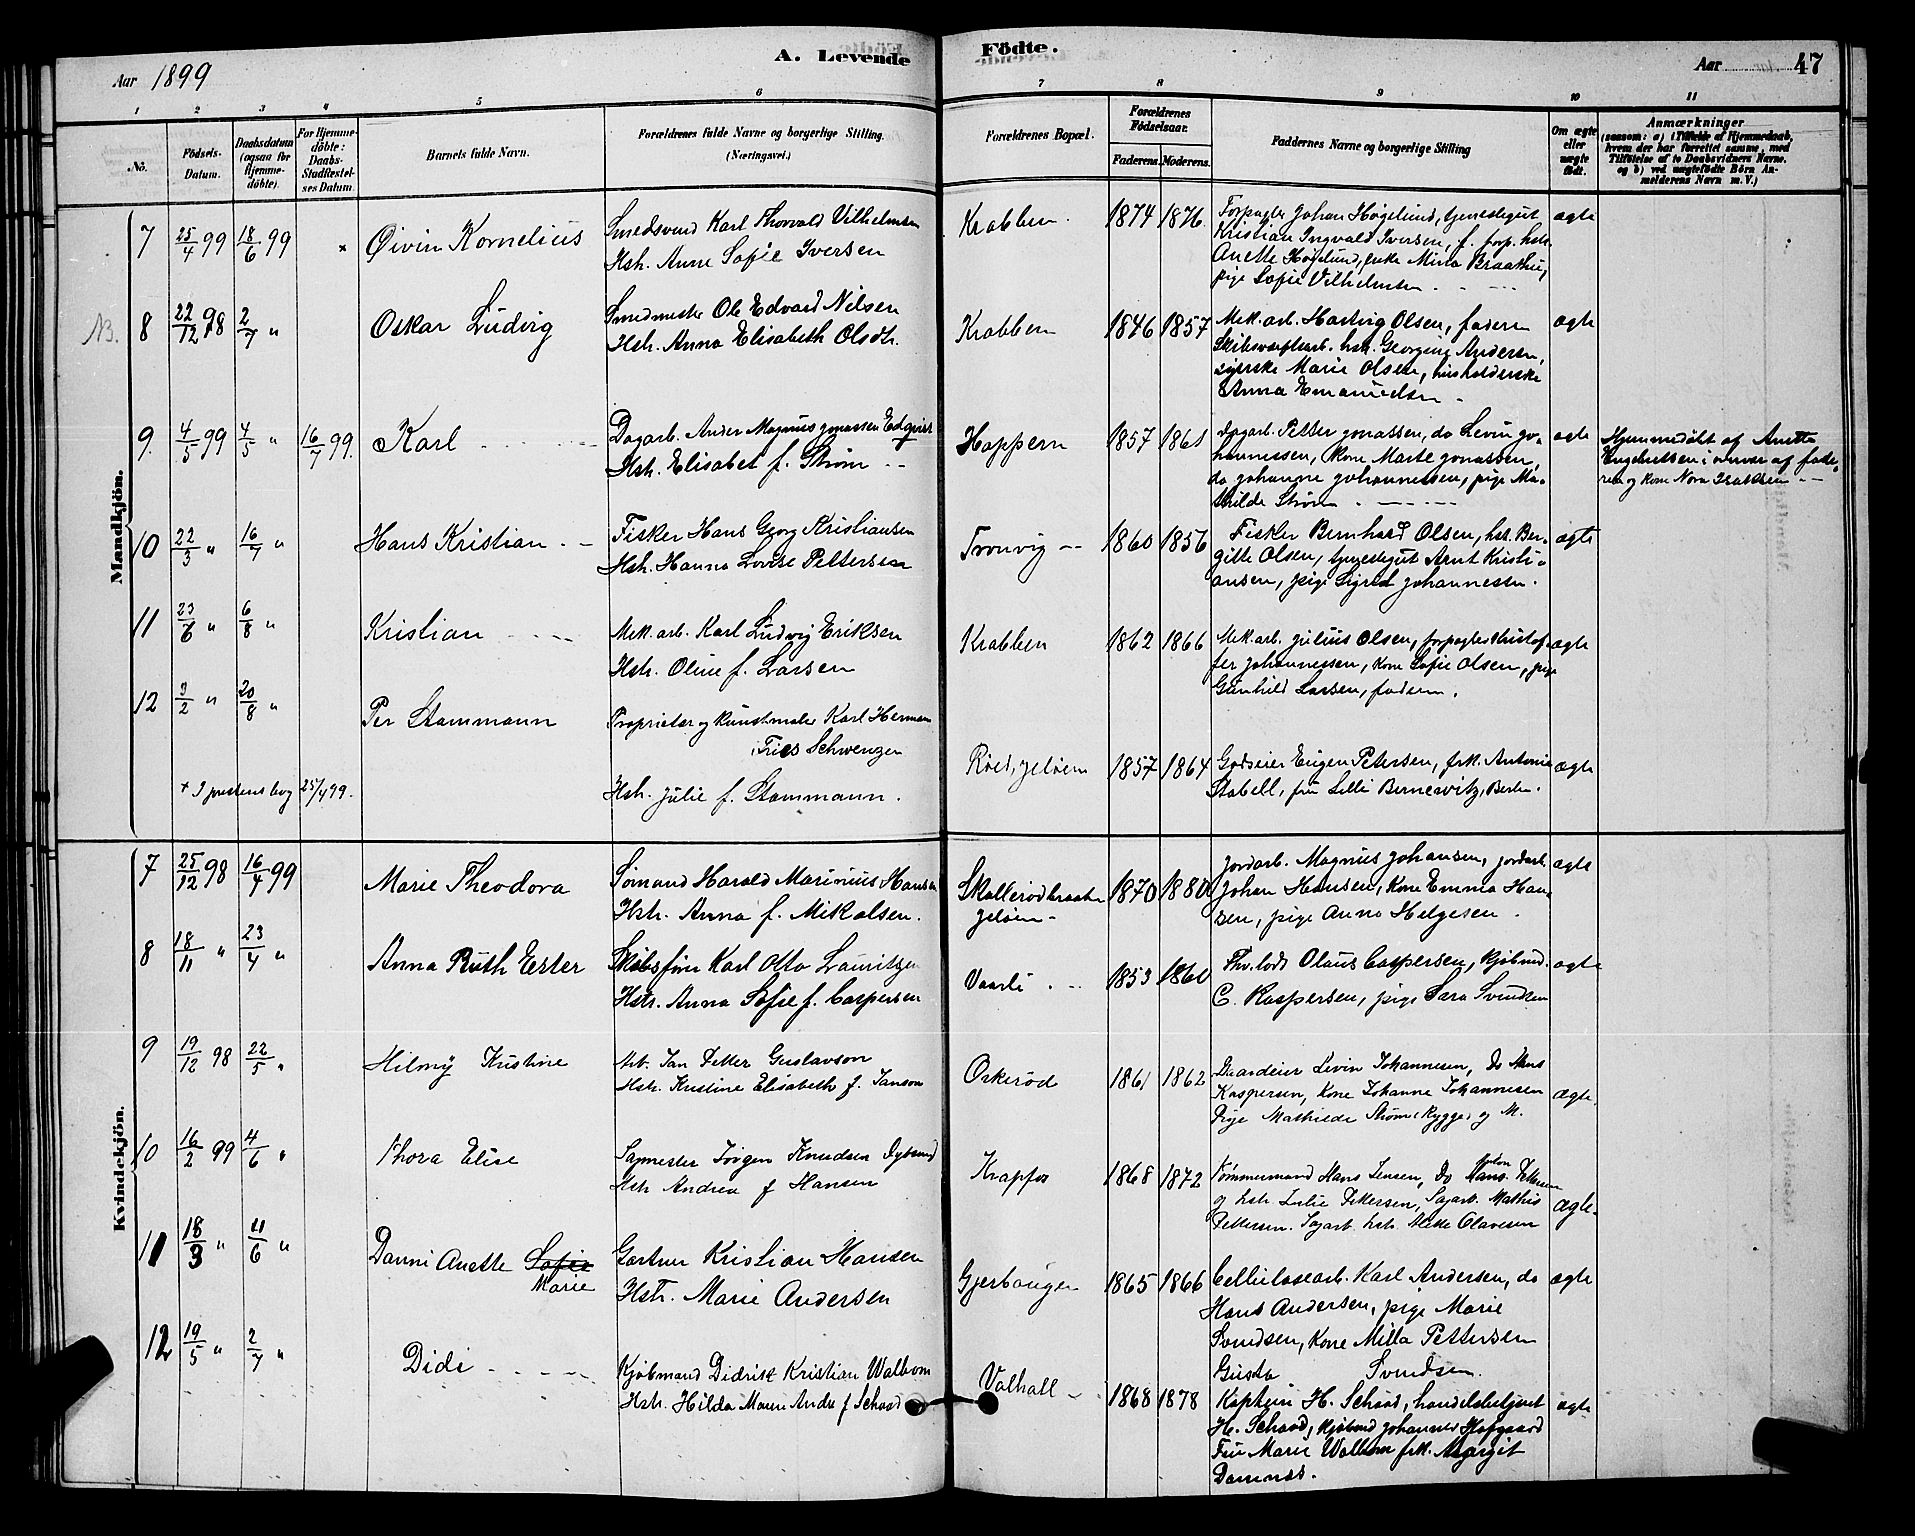 Aar 1899
A. Levende
Födte.
Aar 47
1 2 3 4 5 6 7 8 9 10 11
No.
Födsels-
Datum.
Daabsdatum
(ogsaa for
Hjemme-
döbte).
For Hjemme-
döbte:
Daabs-
Stadfæstel-
ses Datum.
Barnets fulde Navn.
Forældrenes fulde Navne og borgerlige Stilling.
(Næringsvei.)
Forældrenes Bopæl.
Forældrenes
Födselsaar.
Faderens. Moderens.
Faddernes Navne og borgerlige Stilling
Om ægte
eller
uægte
födt.
Anmærkninger
(saasom: a) i Tilfælde af Hjemmedaab,
hvem der har forrettet samme, med
Tilföielse af to Daabsvidners Navne.
og b) ved uægtefödte Börn An-
melderens Navn m. V.)
Mandkjön.
7 25/4 99 18/6 99 × Øivin Kornelius
Smedsvend Karl Thorvald Vilhelmsen
Hstr. Anne Sofie Iversen
Krabben. 1874 1876.
Forpagter Johan Høgelund, tjenestegut
Kristian Ingvald Iversen, f. forp. hstr.
Anette Høgelund, enke Mina Braathu,
pige Sofie Vilhelmsen
ægte
NB. 8 22/12 98 2/7 " Oskar Ludvig
Smedmester Ole Edvard Nilsen
Hstr. Anna Elisabeth Olsdtr.
Krabben 1846 1857
Mek. arb. Hartvig Olsen, faderen
Skibsværftsarb. hstr. Georgine Andersen,
syerske Marie Olsen, husholderske
Anna Emanuelsen
ægte
9. 4/5 99 4/5 " 16/7 99. Karl
Dagarb. Anders Magnus Jonassen Edqvist
Hstr. Elisabet f. Strøm
Happern 1857 1861
Dagarb. Petter Jonassen, do Levin Jo-
hannessen, Kone Marte Jonassen,
do Johanne Johannessen, pige Ma-
thilde Strøm
ægte
Hjemmedøbt af Anette
Engebretsen i nærvær af fade-
ren og kone Nora Isaksen
10 22/3 " 16/7 " Hans Kristian
Fisker Hans Georg Kristiansen
Hstr. Hanna Lovise Pettersen
Tronvig 1860 1856
Fisker Bernhard Olsen, hst. Ber-
gitte Olsen, tjenestegut Arnt Kristi-
ansen, pige Sigrid Johannessen.
ægte
11 23/6 " 6/8 " Kristian
Mek. arb. Karl Ludvig Eriksen
Hstr. Oline f. Larsen
Krabben 1862 1866
Mek. arb. Julius Olsen, forpagter Kristof-
fer Johannessen, kone Sofie Olsen, pige
Gunhild Larsen, faderen.
ægte
12 3/2 " 20/8 " Per Stammann
Proprietær og Kunstmaler Karl Herman
Fries Schwenzen
Hstr. Julie f. Stammann.
Røed, Jeløen 1857 1864
Godseier Eugen Petersen, frk. Antonie
Stabell, fru Lilli Bernewitz, Berlin.
ægte
+ I prestens bog 25/4 99.
Kvindekjön.
7 25/12 98 16/4 99 Marie Theodora
Sømand Harald Marinius Hansen
Hstr. Anna f. Mikalsen.
Skallerødbraaten
Jeløen 1870 1880
Jordarb. Magnus Johansen, jordarb.
Johan Hansen, Kone Emma Han-
sen, pige Anna Helgesen.
ægte
8 18/11 " 23/4 " Anna Ruth Ester
Skibsfører Karl Otto Lauritzen
Hstr. Anna Sofie f. Caspersen
Vaarli 1853 1860
Thv. lods Olaus Caspersen, kjøbmd.
C. Kaspersen, pige Sara Svendsen
ægte
9 19/12 98 22/5 " Hilmy Kristine
Arb. Jan Petter Gustavson
Hstr. Kristine Elisabeth f. Janson
Orkerød 1861 1862
Gaardeier Levin Johannesen, Do Hans
Kaspersen, Kone Johanne Johannesen
Pige Mathilde Strøm (Rygge) og M.
ægte.
10 16/2 99 4/6 " Thora Elise
Sagmester Jørgen Knudsen Dybsund
Hstr Andrea f Hansen
Krapfos 1868 1872
Tømmermand Hans Jensen, Do Hans Anton Pettersen
og hstr Julie Pettersen, Sagarb. Mathis
Pettersen. Sagarb. hstr. Mette Olavesen
ægte.
11 18/3 " 11/6 " Danni Anette Sofie
Marie
Gartner Kristian Hansen
Hstr. Marie Andersen
Gjerbaugen 1865 1866
Cellulosearb. Karl Andersen, do
Hans Andersen, pige Marie
Svendsen, Kone Milla Pettersen
Gusta Svendsen.
ægte
12 19/5 " 2/7 " Didi
Kjøbmand Didrik Kristian Walbom
Hstr. Hilda Marie Andre f Schaad
Valhall 1868 1878
Kaptein H. Schaad, handelsbetjent
H. Schaad, Kjøbmd Johannes Hofgaard
Fru Marie Walbom frk. Margit
Damnæs.
ægte